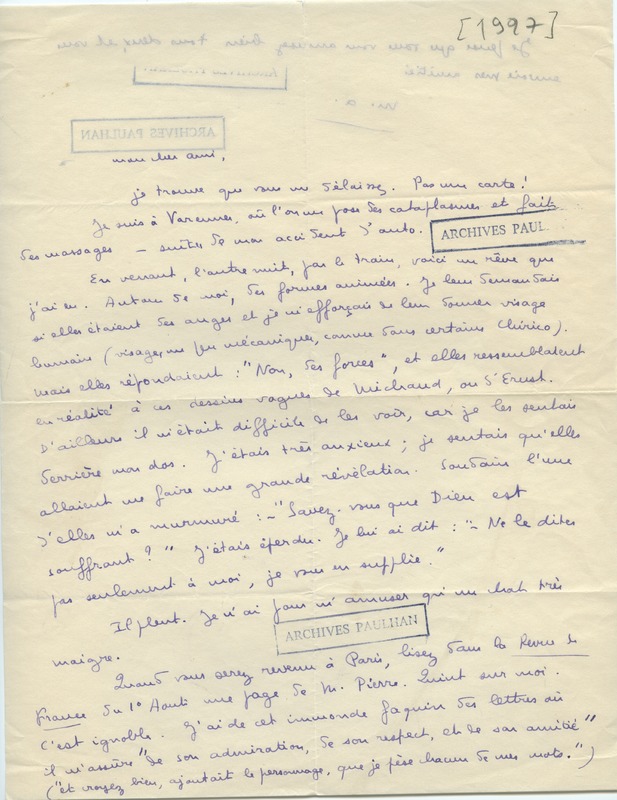 [1927]
ARCHIVES PAULHAN
mon cher ami,
je trouve que vous me délaissez. Pas une carte!
Je suis à Varennes, où l'on me pose des cataplasmes et fait
des massages — suites de mon accident d'auto.
ARCHIVES PAUL
En venant, l'autre nuit, par le train, voici un rêve que
j'ai eu. Autour de moi, des formes animées. Je leur demandais
si elles étaient des anges et je m'efforçais de leur donner visage
humain (visages un peu mécaniques, comme dans certains Chirico).
mais elles répondaient : "Non, des forces", et elles ressemblaient
en réalité à ces dessins vagues de Michaud, ou d'Ernst.
D'ailleurs il m'était difficile de les voir, car je les sentais
derrière mon dos. J'étais très anxieux ; je sentais qu'elles
allaient me faire une grande révélation. Soudain l'une
d'elles m'a murmuré : — "Savez-vous que Dieu est
souffrant ?" J'étais éperdu. Je lui ai dit : "— Ne le dites
pas seulement à moi, je vous en supplie."
Il pleut. Je n'ai pour m'amuser qu'un chat très
maigre.
ARCHIVES PAULHAN
Quand vous serez revenu à Paris, lisez dans la Revue de
France du 1° Août une page de M. Pierre-Quint sur moi.
C'est ignoble. J'ai de cet immonde faquin des lettres où
il m'assure "de son admiration, de son respect, et de son amitié"
("et croyez bien, ajoutait le personnage, que je pèse chacun de mes mots.")